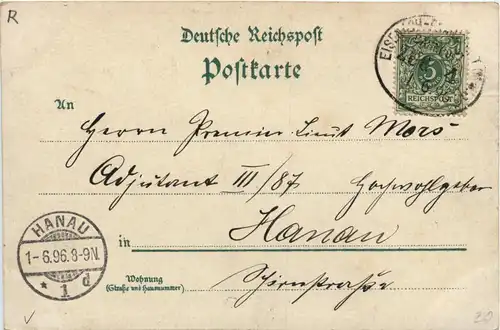 R
Deutsche Reichspost
Postkarte
5
REICHSPOST
An
Herrn Premier-Lieut Mors
Adjutant III/87 Hochwohlgeboren
in Hanau
HANAU
1-6.96.8-9N.
* 1 d
Wohnung
(Straße und Hausnummer)